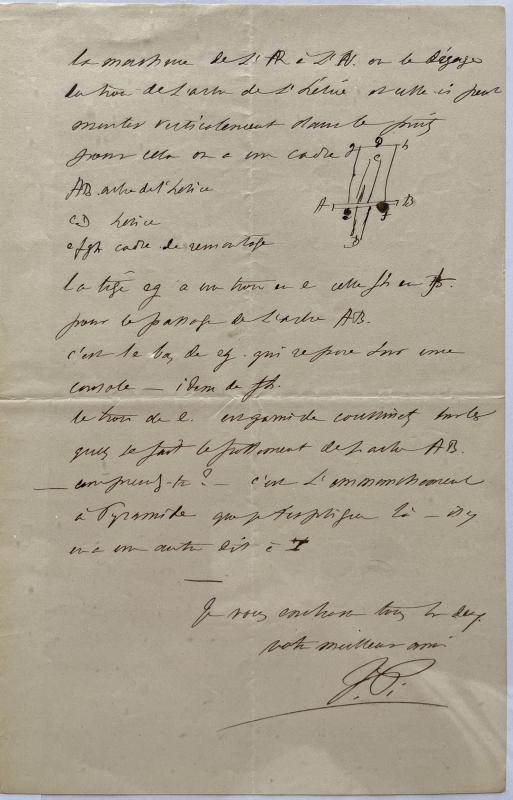 la machine de l'AR à l'AV. on le dégage
du trou de l'arbre de l'hélice et celle ci peut
monter verticalement dans le puits
pour cela on a un cadre
g D h
C
A B
e f
D
AB. arbre de l'hélice
CD hélice
efgh cadre de remontage
la tige eg a un trou en e celle fh en f.
pour le passage de l'arbre AB.
c'est le bas de eg. qui repose sur une
console — idem de fh.
le trou de e. est garni de coussinets sur les
quels se fait le frottement de l'arbre AB.
— comprends-tu? — c'est l'emmanchement
à Pyramide que je t'explique là — il y
en a un autre dit à T
Je vous embrasse tous les deux
votre meilleur ami
J. P.